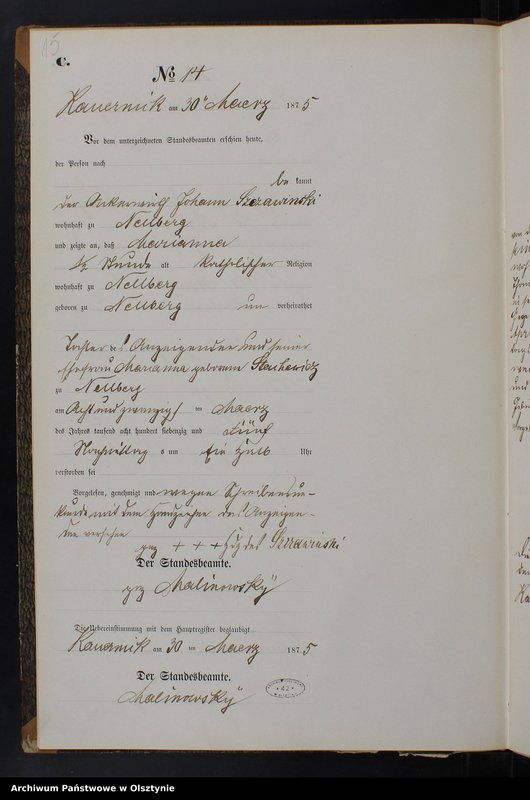 15
C.
No 14
Kauernik am 30ten Maerz 1875
Vor dem unterzeichneten Standesbeamten erschien heute,
der Person nach
be kannt
der Johann Szczawinski
wohnhaft zu Nellberg
und zeigte an, daß Marianna
1/2 Stunde alt katholischer Religion
wohnhaft zu Nellberg
geboren zu Nellberg un verheirathet
Tochter des Anzeigenden und seiner
Ehefrau Marianna geborenen
zu Nellberg
am Acht und zwanzigsten Maerz
des Jahres tausend acht hundert siebenzig und fünf
Nachmittag s um ein halb Uhr
verstorben sei
Vorgelesen, genehmigt und wegen Schreibensun-
kunde mit dem Handzeichen des Anzeigen-
den versehen
gez + + + Hdz des Szczawinski
Der Standesbeamte.
gez Malinowsky
Die Uebereinstimmung mit dem Hauptregister beglaubigt
Kauernik am 30 ten Maerz 1875
Der Standesbeamte.
Malinowsky
42
Archiwum Państwowe w Olsztynie